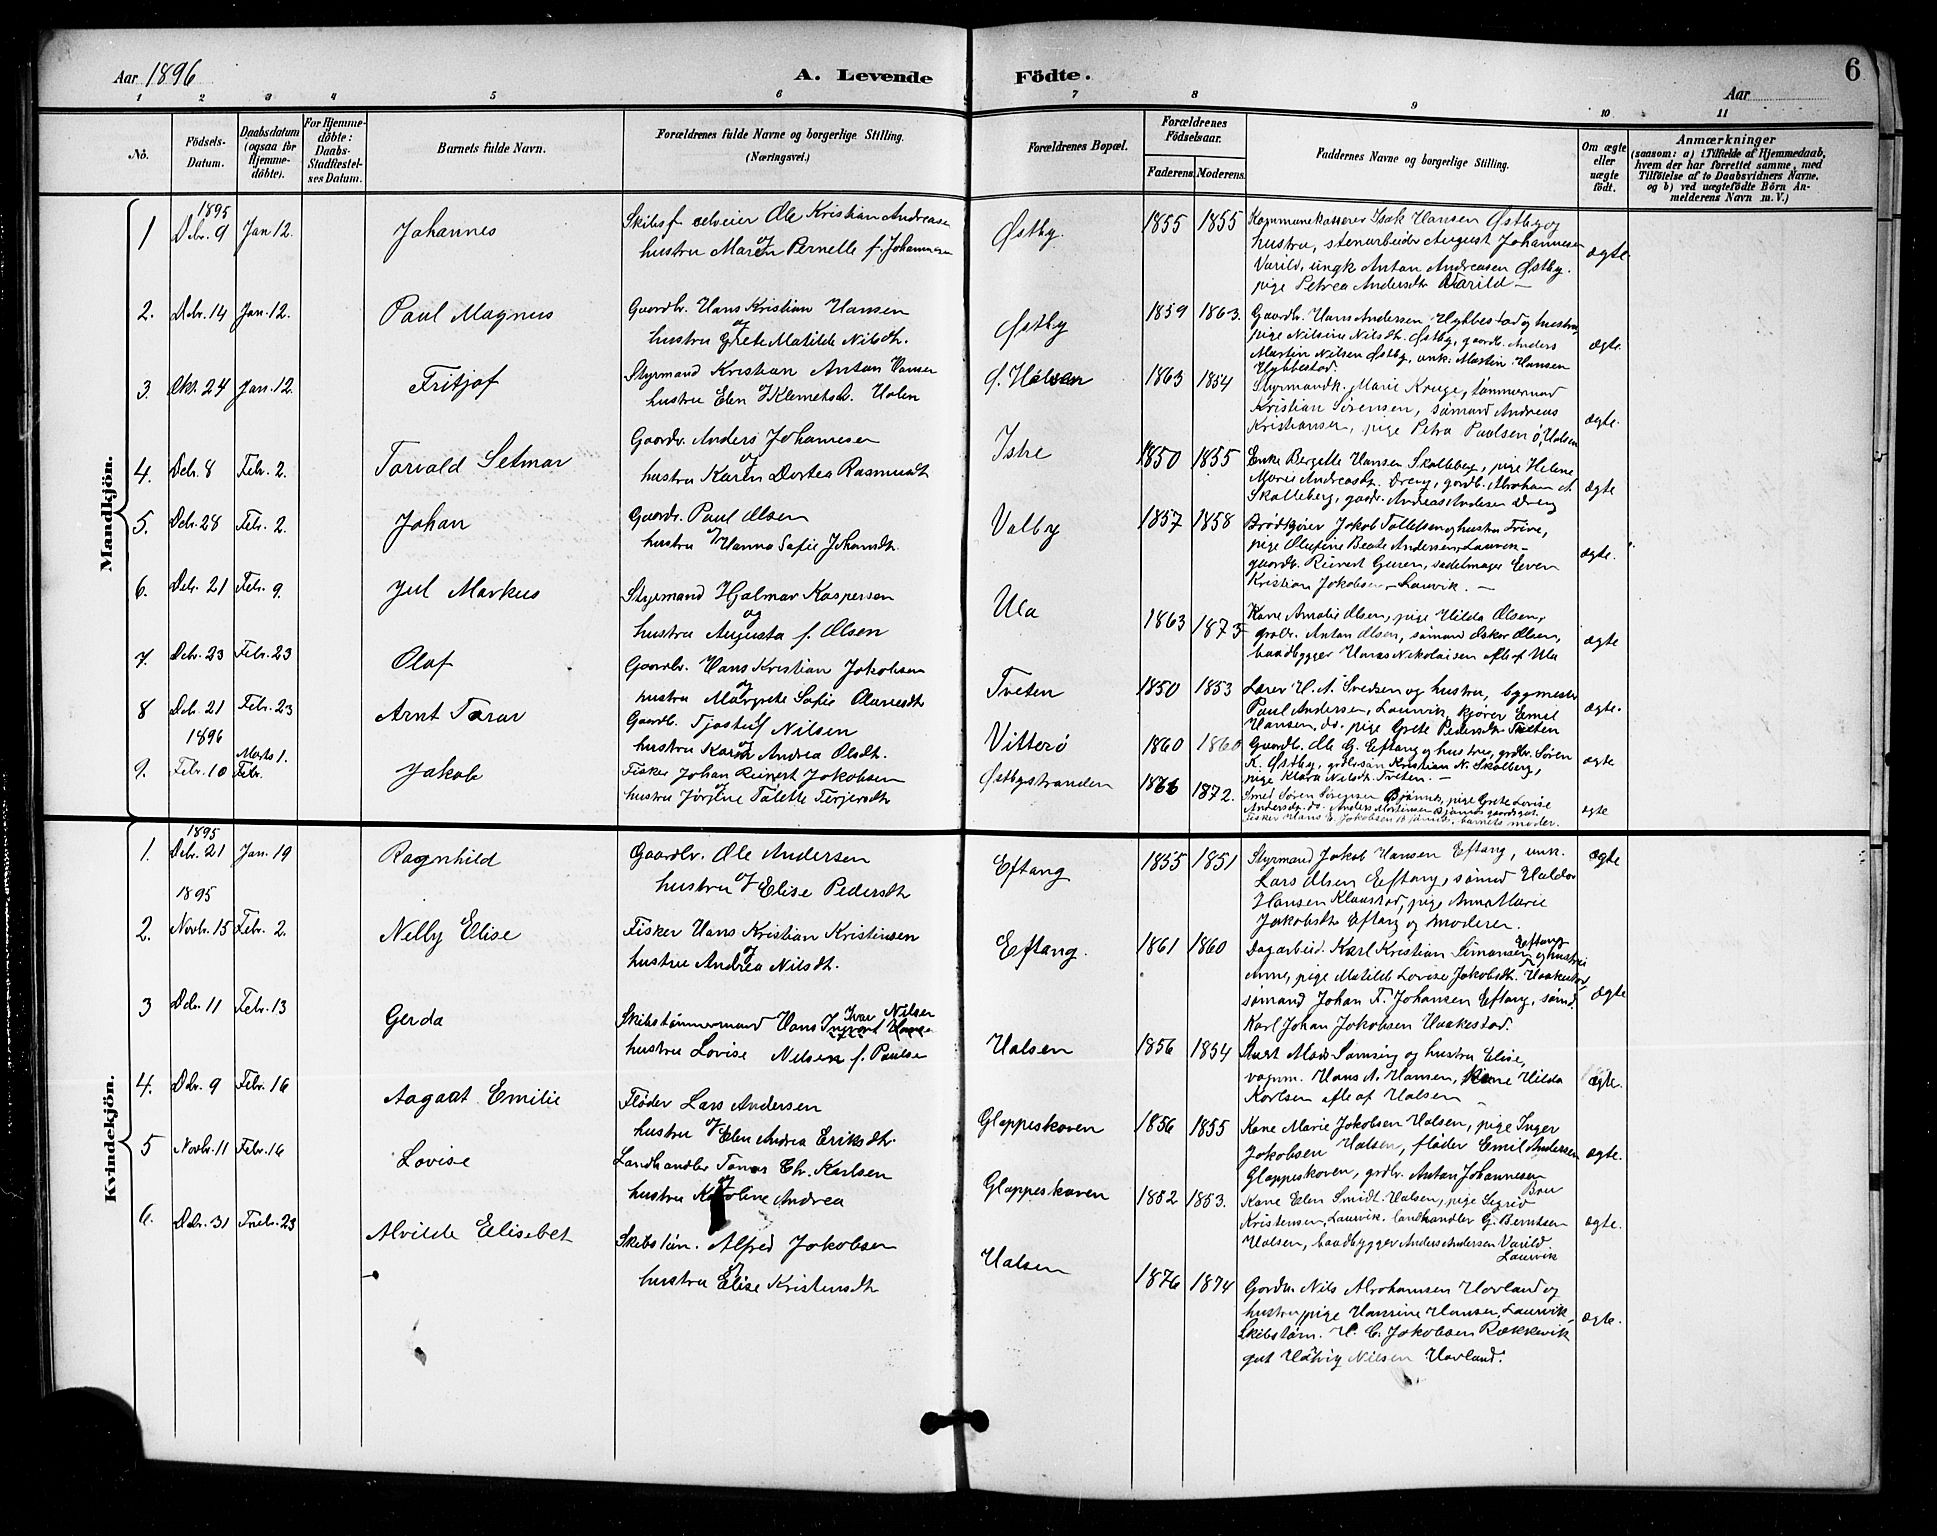 Aar 1896
A. Levende Födte.
Aar
6
1 2 3 4 5 6 7 8 9 10 11
No.
Födsels-Datum.
Daabsdatum (ogsaa for Hjemme-döbte).
For Hjemme-döbte: Daabs-Stadfæstel-ses Datum.
Barnets fulde Navn.
Forældrenes fulde Navne og borgerlige Stilling. (Næringsvei.)
Forældrenes Bopæl.
Forældrenes Födselsaar.
Faderens. Moderens.
Faddernes Navne og borgerlige Stilling.
Om ægte eller uægte födt.
Anmærkninger
(saasom: a) i Tilfælde af Hjemmedaab, hvem der har forrettet samme, med Tilföielse af to Daabsvidners Navne, og b) ved uægtefödte Börn An-melderens Navn m. V.)
Mandkjön.
1 1895 Debr. 9 Jan 12. Johannes
Ole Kristian Andreasen
og
hustru Maren Pernelle f. Johannesen
Østby. 1855 1855
Kommunekasserer Isak Hansen Østby og
hustru, stenarbeider August Johannesen
Varild, ungk Antan Andreasen Østby.
pige Petrea Andersdtr Varild —
ægte
2. Debr. 14 Jan. 12. Paul Magnus
Gaardbr. Hans Kristian Hansen
og
hustru Grete Matilde Nilsdt.
Østby 1859 1863.
Gaardb. Hans Andersen Hybbestad og hustru,
pige Nilsine Nilsdt. Østby, gaardb. Anders
Martin Nilsen Østby, unk. Martin Hansen
Hybbestad.
ægte
3. Okt. 24 Jan. 12. Fritjof
Styrmand Kristian Antan Hansen
hustru Elen Klemetsd. Holen
1863 1854
Styrmandk. Marie Kruge, tømmermand
Kristian Sørensen, sømand Andreas
Kristiansen, pige Petra Paulsen Ø, Halsen
ægte.
4. Debr. 8 Febr. 2. Torvald Selmar
Gaardbr. Anders Johannesen
og
hustru Karen Dortea Rasmusdt
Istre 1850 1855
Enke Bergette Hansen Skalleberg, pige Helene
Marie Andreasdt. Dreng, gardb. Abraham A.
Skalleberg, gaardb. Andreas Andersen Dreng
ægte
5. Debr. 28 Febr. 2. Johan
Gaardbr. Paul Olsen
og
hustru Hanna Sofie Johansdt.
Valby 1857 1858
Brødkjører Jakob Tollefsen og hustru Trine,
pige Olufine Beate Andersen, Laurvik —
gaardb. Reinert Guren, sadelmager Even
Kristian Jakobsen, Laurvik. —
ægte.
6. Debr. 21 Febr. 9. Jul Markus
Styrmand Hjalmar Kaspersen
og
hustru Augusta f. Olsen
Ula 1863 1873
Kone Amalie Olsen, pige Hilda Olsen,
grdbr. Antan Olsen, sømand Oskar Olsen,
baadbygger Hans Nikolaisen alle af Ula
ægte
7. Debr. 23 Febr. 23 Olaf
Gaardbr. Hans Kristian Jakobsen
og
hustru Margrete Sofie Olavesdt
Tveten 1850 1853
Lærer H. A. Svedsen og hustru, bygmester
Paul Andersen, Laurvik, kjører Emil
Hansen, do. pige Grete Pedersdt Tveten
ægte.
8 Debr. 21 Febr. 23 Arnt Torar
Gaardb. Tjøstulf Nilsen
og
hustru Karen Andrea Olsdt.
Vitterø 1860 1860
Gaardb. Ole G. Eftang og hustru, grdbr. Søren
K. Østby, grdbrsøn Kristian N. Skalberg,
pige Klara Nilsdt. Tveten. —
ægte
9. 1896 Febr. 10 Marts 1. Febr. Jakob
Fisker Johan Reinert Jakobsen
og
hustru Jørgine Talette Terjersdt
Østbystranden 1866 1872.
Smed Søren Sørensen Bjønnes, pige Grete Lovise
Andersdt. do. Anders Mortensen Bjønnes gaardsgut.
Fisker Hans E. Jakobsen Bjønnes, barnets moder.
ægte
Kvindekjön.
1. 1895 Debr. 21 Jan. 19 Ragnhild
Gaardbr. Ole Andersen
hustru og Elise Pedersdt
Eftang 1855 1851
Styrmand Jakob Hansen Eftang, unk.
Lars Olsen Eftang, sømd Haldor
Hansen Klaastad, pige Anna Marie
Jakobsdt. Eftang og moderen.
ægte
2. 1895 Novbr. 15 Febr. 2. Nelly Elise
Fisker Hans Kristian Kristensen
og
hustru Andrea Nilsdt.
Eftang. 1861 1860
Dagarbeid. Karl Kristian Simonsen Eftang og hustru
Anne, pige Matilde Lovise Jakobsdt. Haakestad,
sømand Johan F. Johansen Eftang, sømd.
Karl Johan Jakobsen Haakestad.
ægte
3 Debr. 11 Febr. 13 Gerda
Skibstømmermand Hans Ivar Nilsen
hustru Lovise Nilsen f. Paulsen
Halsen 1856 1854
Mads Sømsing og hustru Elise,
vognm. Hans A. Hansen, Kone Hilda
Karlsen alle af Halsen —
ægte.
4. Debr. 9 Febr. 16 Aagaat Emilie
Fløder Lars Andersen
hustru og Elen Andrea Eriksdt.
Gloppeskoven 1856 1855
Kone Marie Jokobsen Halsen, pige Inger
Jokobsen Halsen, fløder Emil Andersen
Gloppeskoven, grdbr. Antan Johannesen
Bru
ægte.
5 Novbr. 11 Febr. 16 Lovise
Landhandler Tomas Chr. Karlsen
og
hustru Karoline Andrea
Gloppeskoven 1852 1853.
Kone Elen Smidt. Halsen, pige Sigrid
Kristensen, Laurvik. landhandler G. Berntsen
Halsen, baadbygger Anders Andersen Varild
Laurvik
ægte.
6. Debr. 31 Febr. 23 Alvilde Elisebet
Skibstøm. Alfred Jokobsen
og
hustru Elise Kristensdt
Halsen 1876 1874
Gordbr. Nils Abrahamsen Hovland og
hustru, pige Hansine Hansen, Laurvik,
Skibstøm. H. C. Jokobsen Rækkevik
gut Nilsen Hovland.
ægte.